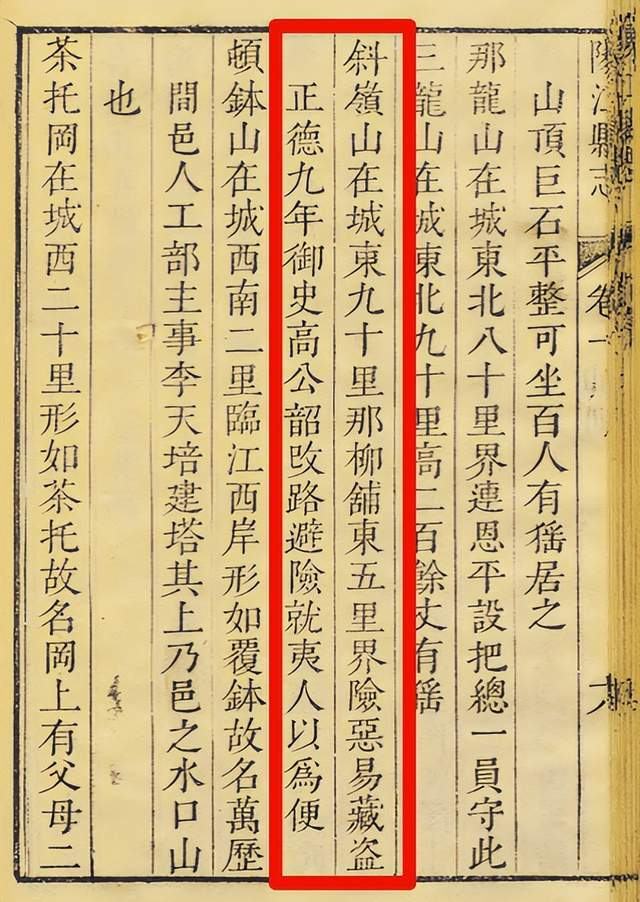 陽江縣志 卷一
山頂巨石平整可坐百人有猺居之
那龍山在城東北八十里界連恩平設把總一員守此
三龍山在城東北九十里高二百餘丈有猺
斜嶺山在城東九十里那柳舖東五里界險惡易藏盜
正德九年御史高公韶改路避險就夷人以為便
頓鉢山在城西南二里臨江西岸形如覆鉢故名萬歷
間邑人工部主事李天培建塔其上乃邑之水口山
也
茶托岡在城西二十里形如茶托故名岡上有父母二